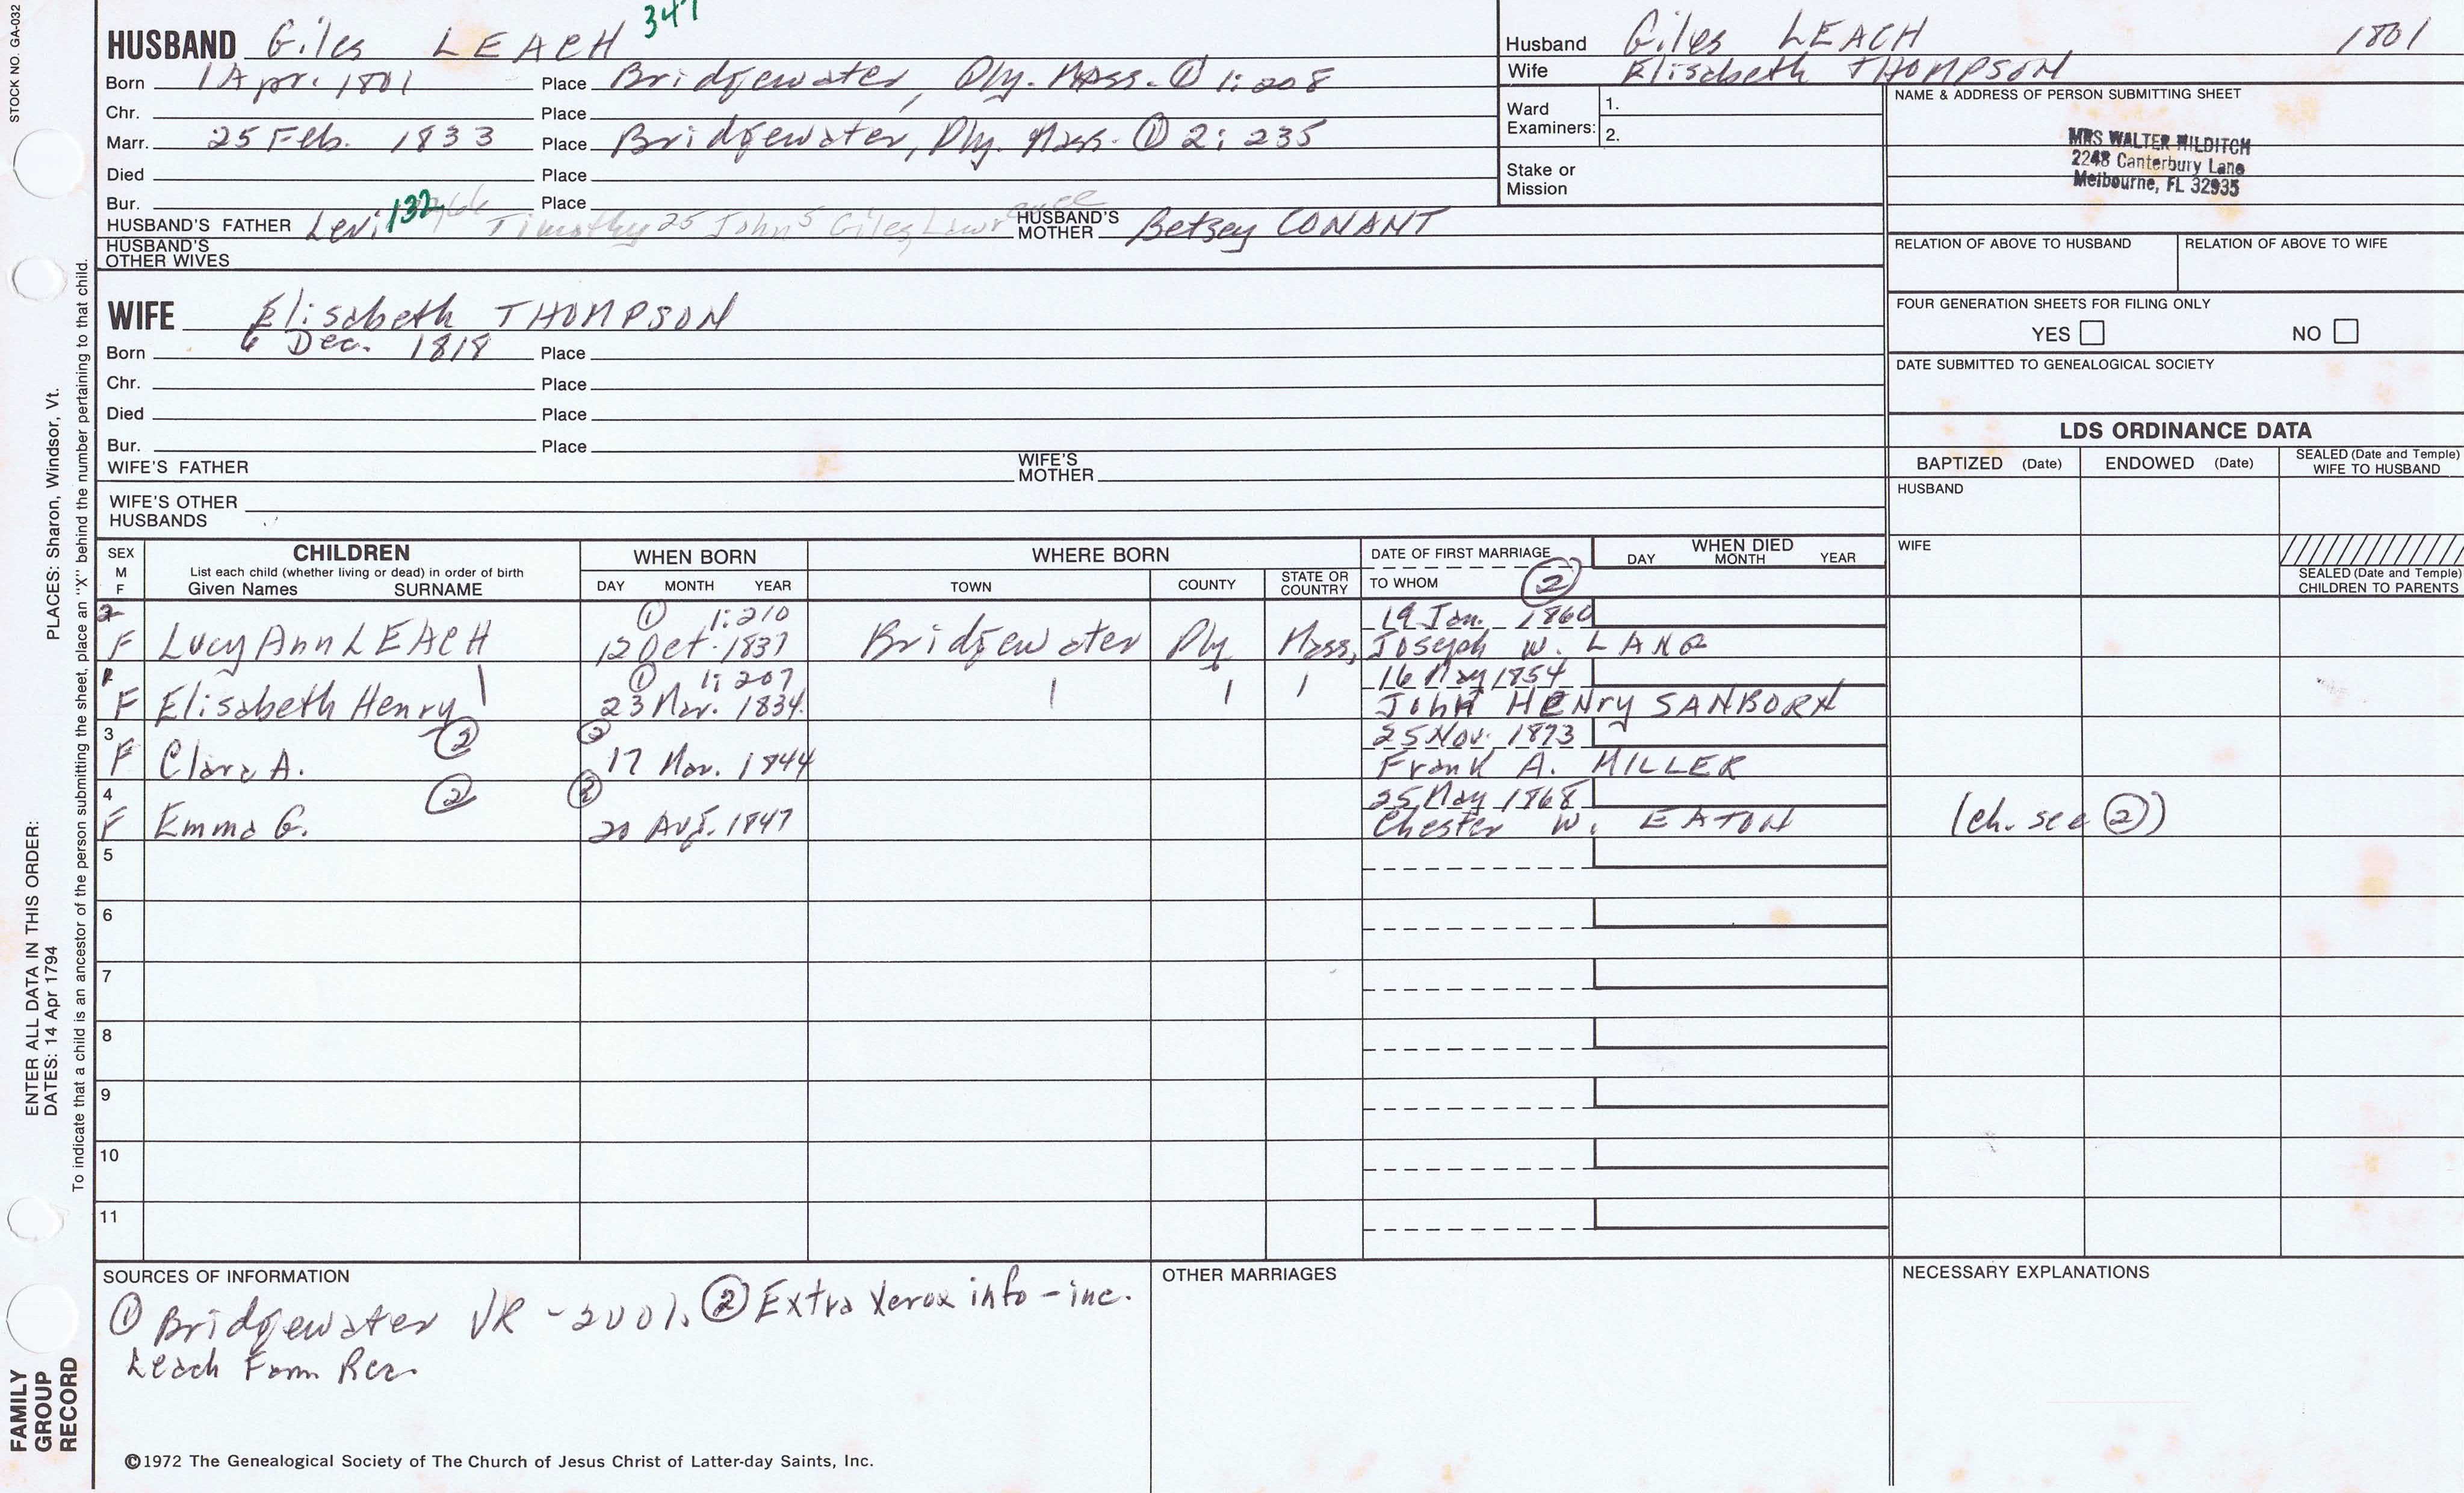 STOCK NO. GA-032
HUSBAND Giles LEACH 347
Born 1 Apr. 1801 Place Bridgewater, Ply. Mass. ① 1:208
Chr. Place
Marr. 25 Feb. 1833 Place Bridgewater, Ply. Mass. ① 2:235
Died Place
Bur. Place
HUSBAND'S FATHER Levi 132 Timothy 25 John 5 Giles Lawrence HUSBAND'S MOTHER Betsey CONANT
HUSBAND'S OTHER WIVES
Husband Giles LEACH 1801
Wife Elisabeth THOMPSON
Ward Examiners: 1.
2.
Stake or Mission
NAME & ADDRESS OF PERSON SUBMITTING SHEET
MRS WALTER HILDITCH
2248 Canterbury Lane
Melbourne, FL 32935
RELATION OF ABOVE TO HUSBAND RELATION OF ABOVE TO WIFE
FOUR GENERATION SHEETS FOR FILING ONLY
YES NO
DATE SUBMITTED TO GENEALOGICAL SOCIETY
WIFE Elisabeth THOMPSON
Born 6 Dec. 1818 Place
Chr. Place
Died Place
Bur. Place
WIFE'S FATHER WIFE'S MOTHER
WIFE'S OTHER HUSBANDS
LDS ORDINANCE DATA
BAPTIZED (Date) ENDOWED (Date) SEALED (Date and Temple) WIFE TO HUSBAND
HUSBAND
WIFE
SEALED (Date and Temple) CHILDREN TO PARENTS
SEX M F
CHILDREN
List each child (whether living or dead) in order of birth
Given Names SURNAME
WHEN BORN
DAY MONTH YEAR
WHERE BORN
TOWN COUNTY STATE OR COUNTRY
DATE OF FIRST MARRIAGE
TO WHOM ②
WHEN DIED
DAY MONTH YEAR
2 ① 1:210 19 Jan. 1860
F Lucy Ann LEACH 12 Oct. 1837 Bridgewater Ply Mass, Joseph W. LANE
① 1:207 16 May 1854
F Elisabeth Henry 23 Mar. 1834 John HENry SANBORN
3 ② ② 25 Nov. 1873
F Clara A. 17 Mar. 1844 Frank A. MILLER
4 ② ② 25 May 1868
F Emma G. 20 Aug. 1847 Chester W. EATON (ch. see ②)
5
6
7
8
9
10
11
SOURCES OF INFORMATION
① Bridgewater VR - 200%. ② Extra Xerox info - inc.
Leach Fam Rec.
OTHER MARRIAGES
NECESSARY EXPLANATIONS
©1972 The Genealogical Society of The Church of Jesus Christ of Latter-day Saints, Inc.
FAMILY GROUP RECORD
ENTER ALL DATA IN THIS ORDER:
DATES: 14 Apr 1794
PLACES: Sharon, Windsor, Vt.
To indicate that a child is an ancestor of the person submitting the sheet, place an "X" behind the number pertaining to that child.